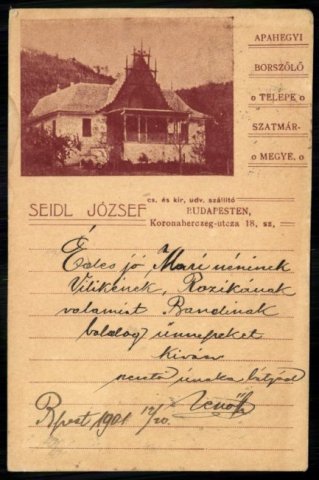 APAHEGYI
BORSZŐLŐ
o TELEPE o
SZATMÁR-
o MEGYE. o
SEIDL JÓZSEF
cs. és kir. udv. szállító
BUDAPESTEN,
Koronaherczeg-utcza 18. sz.
Édes jó Mari néninek
Vilikének, Rozikának
valamint Bandinak
boldog ünnepeket
kiván
szerető unoka bátyjuk
Jenő
Bpest 1901 12/20.